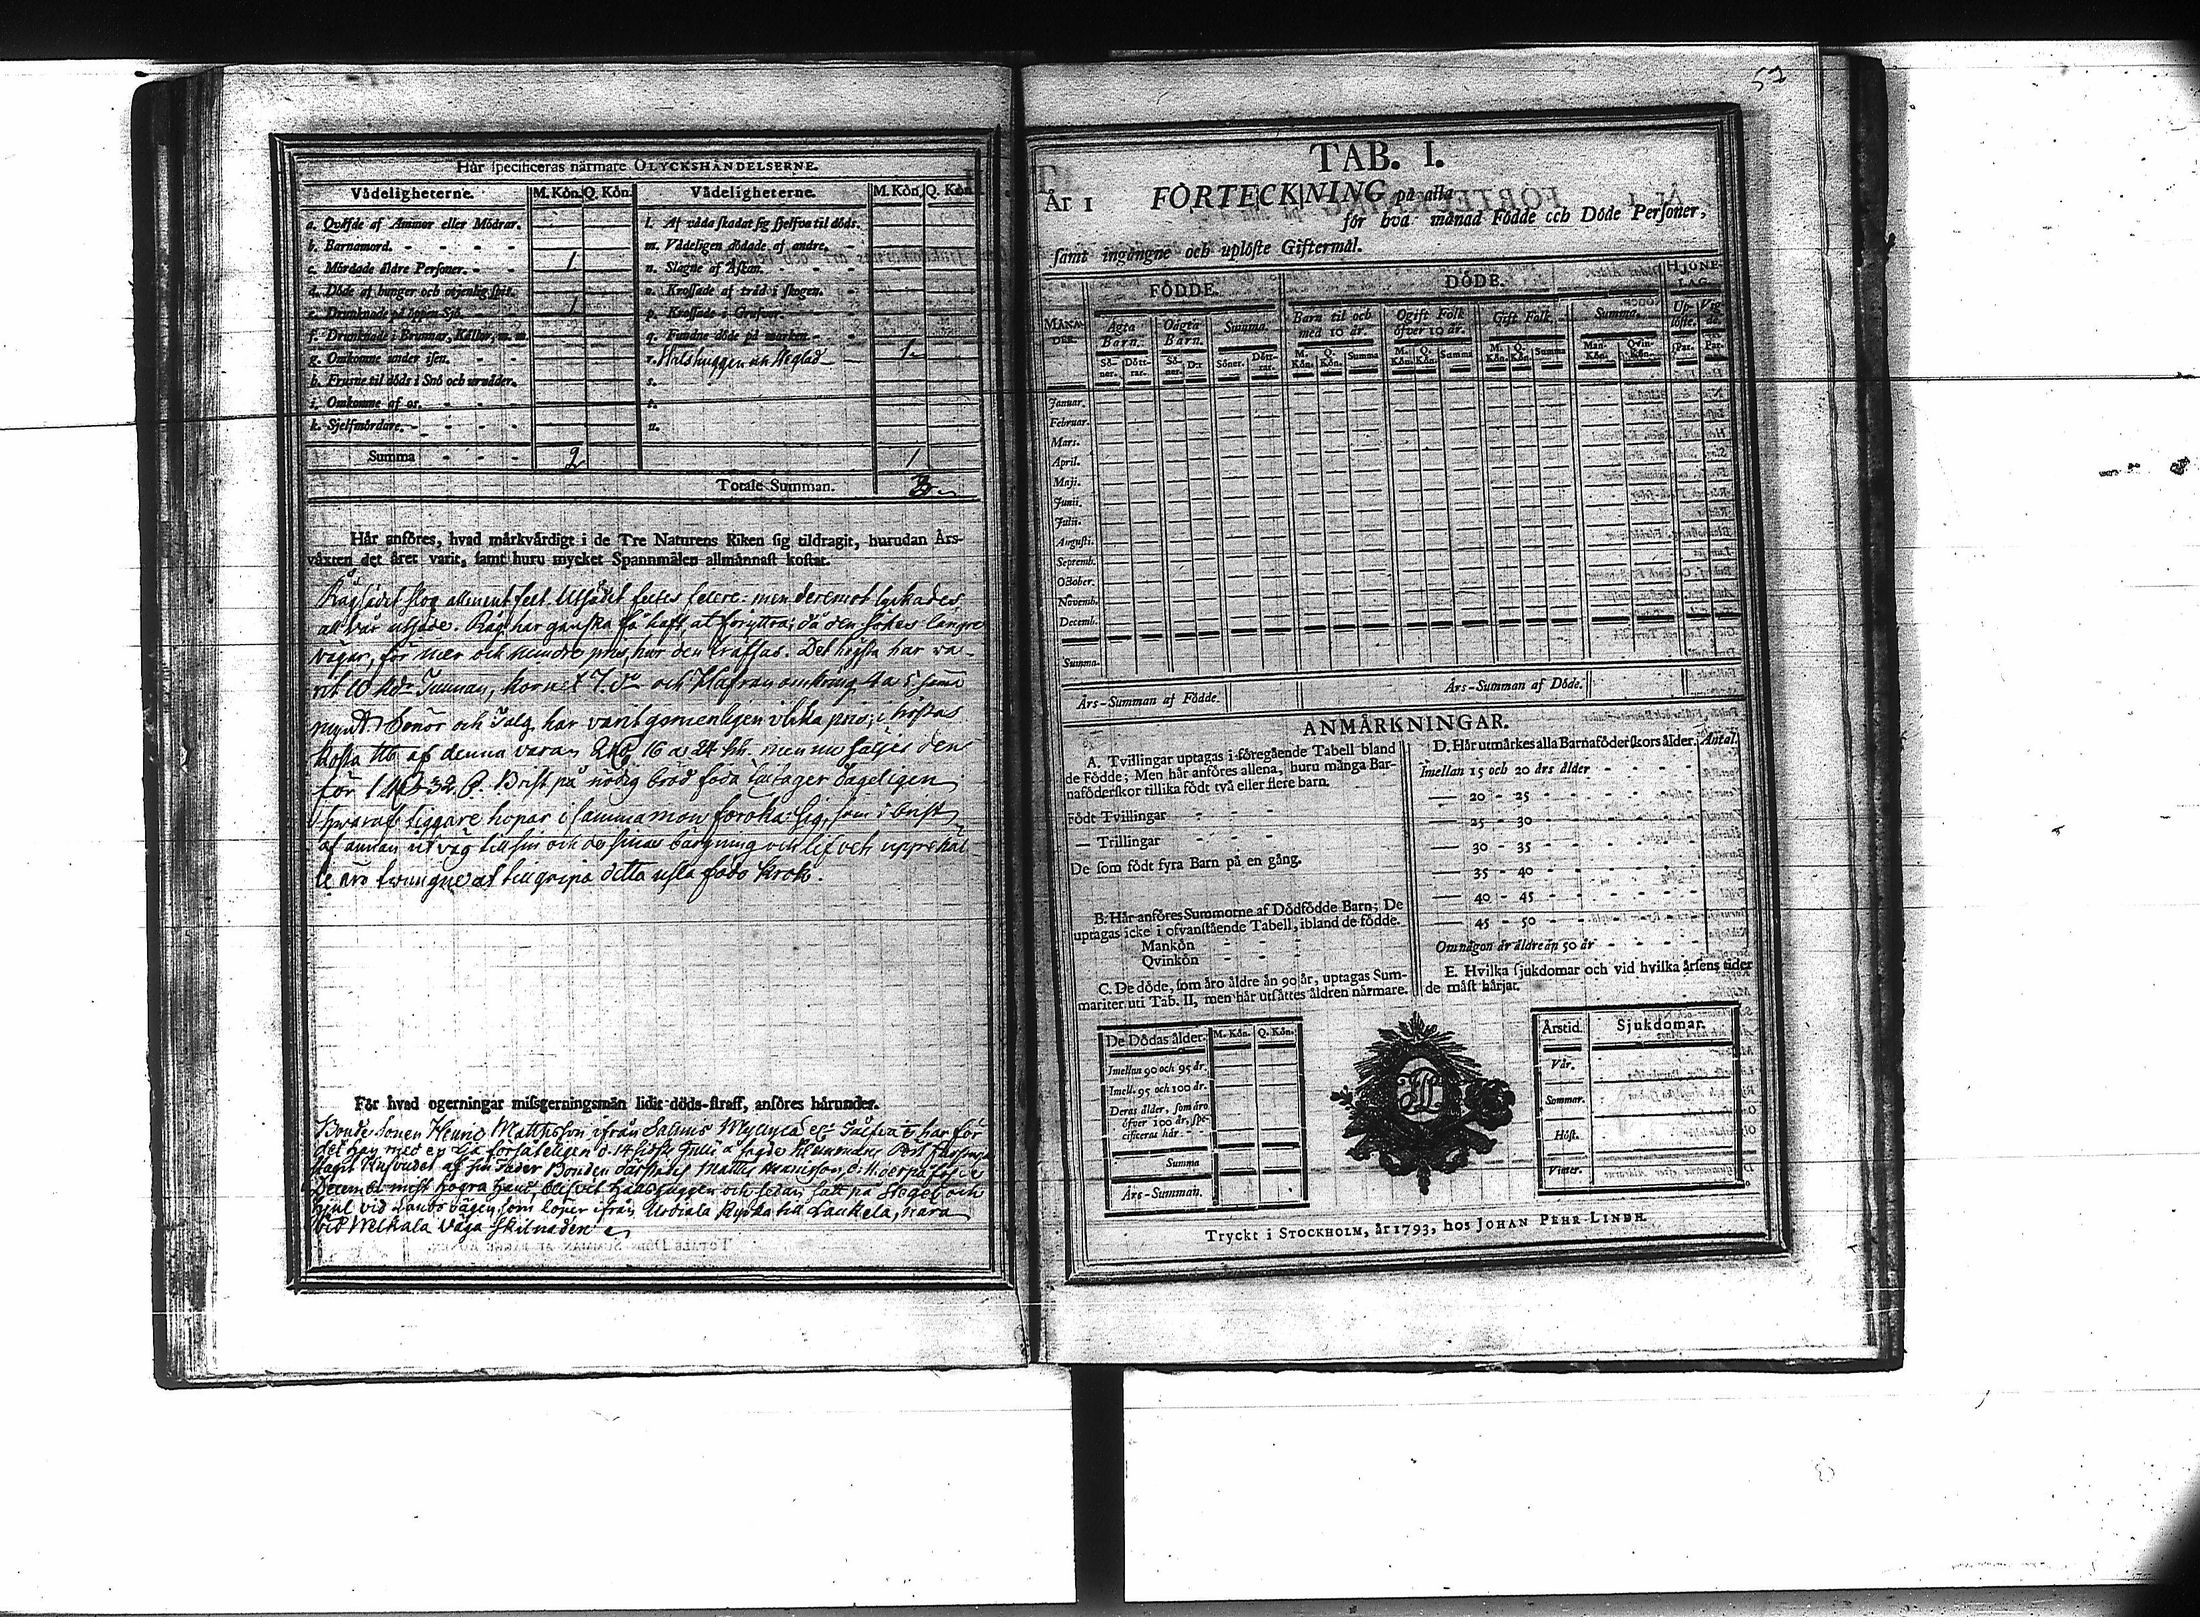 Här specificeras närmare OLYCKSHÄNDELSERNE.
Vådeligheterne. M. Kön. Q. Kön. Vådeligheterne. M. Kön. Q. Kön.
a. Qväfde af Ammor eller Mödrar. l. Af våda skadat sig sjelfva til döds.
b. Barnamord. m. Vådeligen dödade af andre.
c. Mördade äldre Personer. 1 n. Slagne af Åskan.
d. Döde af hunger och ovjenlig spis. o. Krossade af träd i skogen.
e. Drunknade på öppen Sjö. 1 p. Krossade i Grufvor.
f. Drunknade i Brunnar, Källor, m. m. q. Fundne döde på marken.
g. Omkomne under isen. r. Halshuggen och Steglad 1
h. Frusne til döds i Snö och urväder. s.
i. Omkomne af os. t.
k. Sjelfmördare. u.
Summa 2 1
Totale Summan. 3
Här anföres, hvad märkvärdigt i de Tre Naturens Riken sig tildragit, hurudan Års-
växten det året varit, samt huru mycket Spannmålen allmännast kostat.
Rågsädet slog allment felt. Utsädet feltes: men deremot lyckades
all vår utsäde. Råg har ganska få haft at föryttra; då den sökes längre
vägar, för mer och mindre pris har den träffas. Det högsta har va-
rit 10 Rdr Tunnan, kornet 7 do och Hafran omkring 4 a 5 samma
mynt. Smör och Talg har varit gemenligen i lika pris; i höstas
kosta af denna varan 16 a 24 men nu säljes den
för 32. Brist på nödig bröd föda tiltager dageligen
hvaraf tiggare hopar i samma mon föröka sig, som i brist
af annan utväg till sin och de sinas bärgning och lif och uppehäl-
le äro tvungne at tillgripa detta usla födo krok.
För hvad ogerningar missgerningsmän lidit döds-straff, anföres härunder.
Bonde Sonen Henric Mattsson ifrån Salmis har för
det han med en yxa försåteligen d. 14 sistl. Julii
slagit hufvudet af sin Fader Bonden
December mist högra hand, blifvit halshuggen och sedan satt på Stegel och
hjul vid Landsvägen, som löper ifrån Urdiala Kyrka till Laukela, nära
vid Melkala väga skilnaden
52
TAB. I.
År 1 FÖRTECKNING på alla
för hva månad Födde och Döde Personer,
samt ingångne och uplöste Giftermål.
MÅNA-DER. FÖDDE. DÖDE. HJONE-LAG.
Ägta Barn. Oägta Barn. Summa. Barn til och med 10 år. Ogift Folk öfver 10 år. Gift Folk. Summa. Up-löste. Vig-
Sö-ner. Dött-rar. Sö-ner. D:r Söner. Dött-rar. M. Kön. Q. Kön. Summa M. Kön. Q. Kön. Summa M. Kön. Q. Kön. Summa Man-Kön. Qvin-Kön. Par. Par.
Januar.
Februar.
Mars.
April.
Maji.
Junii.
Julii.
Augusti.
Septemb.
October.
Novemb.
Decemb.
Summa.
Års-Summan af Födde. Års-Summan af Döde.
ANMÄRKNINGAR.
A. Tvillingar uptagas i föregående Tabell bland
de Födde; Men här anföres allena, huru många Bar-
naföderskor tillika födt två eller flere barn.
Födt Tvillingar
— Trillingar
De som födt fyra Barn på en gång.
B. Här anföres Summorne af Dödfödde Barn; De
uptagas icke i ofvanstående Tabell, ibland de födde.
Mankön
Qvinkön
C. De döde, som äro äldre än 90 år, uptagas Sum-
mariter uti Tab. II, men här utsättes åldren närmare.
D. Här utmärkes alla Barnaföderskors ålder. Antal
Imellan 15 och 20 års ålder
— 20 - 25
— 25 - 30
— 30 - 35
— 35 - 40
— 40 - 45
— 45 - 50
Om någon är äldre än 50 år
E. Hvilka sjukdomar och vid hvilka årsens tider
de mäst härjat.
De Dödas ålder. M. Kön. Q. Kön.
Imellan 90 och 95 år.
Imell. 95 och 100 år.
Deras ålder, som äro
öfver 100 år, spe-
cificeras här.
Summa
Års-Summan.
JPL
Årstid. Sjukdomar.
Vår.
Sommar.
Höst.
Vinter.
Tryckt i STOCKHOLM, år 1793, hos JOHAN PEHR LINDH.